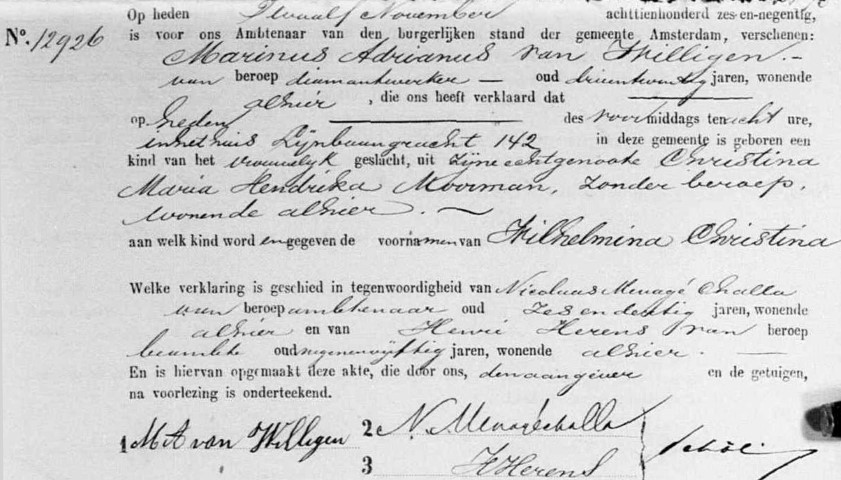 Op heden Twaalf November achttienhonderd zes-en-negentig,
No. 12926 is voor ons Ambtenaar van den burgerlijken stand der gemeente Amsterdam, verschenen:
Marinus Adrianus van Willigen. –
van beroep diamantwerker — oud drieentwintig jaren, wonende
alhier , die ons heeft verklaard dat
op heden des voormiddags ten acht ure,
in het huis Lijnbaangracht 142 in deze gemeente is geboren een
kind van het vrouwelijk geslacht, uit zijne echtgenoote Christina
Maria Hendrika Moorman, zonder beroep,
wonende alhier. —
aan welk kind word en gegeven de voornamen van Wilhelmina Christina
Welke verklaring is geschied in tegenwoordigheid van Nicolaas Menagé Challa
van beroep ambtenaar oud zesendertig jaren, wonende
alhier en van Henri Herens van beroep
beambte oud negenenvijftig jaren, wonende alhier. —
En is hiervan opgemaakt deze akte, die door ons, den aangever en de getuigen,
na voorlezing is onderteekend.
1 M A van Willigen 2 N. Menagé Challa
3 H Herens